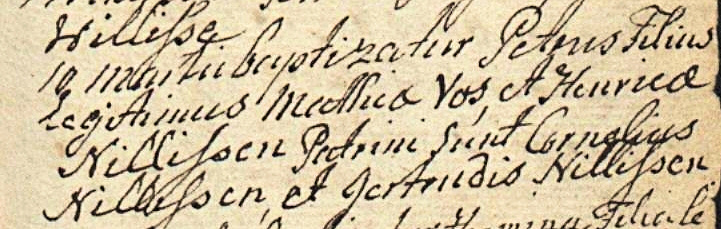 Willisse
10 martii baptizatur Petrus Filius
Legitimus Mathiæ Vos, et Henricæ
Nillissen Patrini sunt Cornelius
Nillissen, et Gertrudis Nillissen